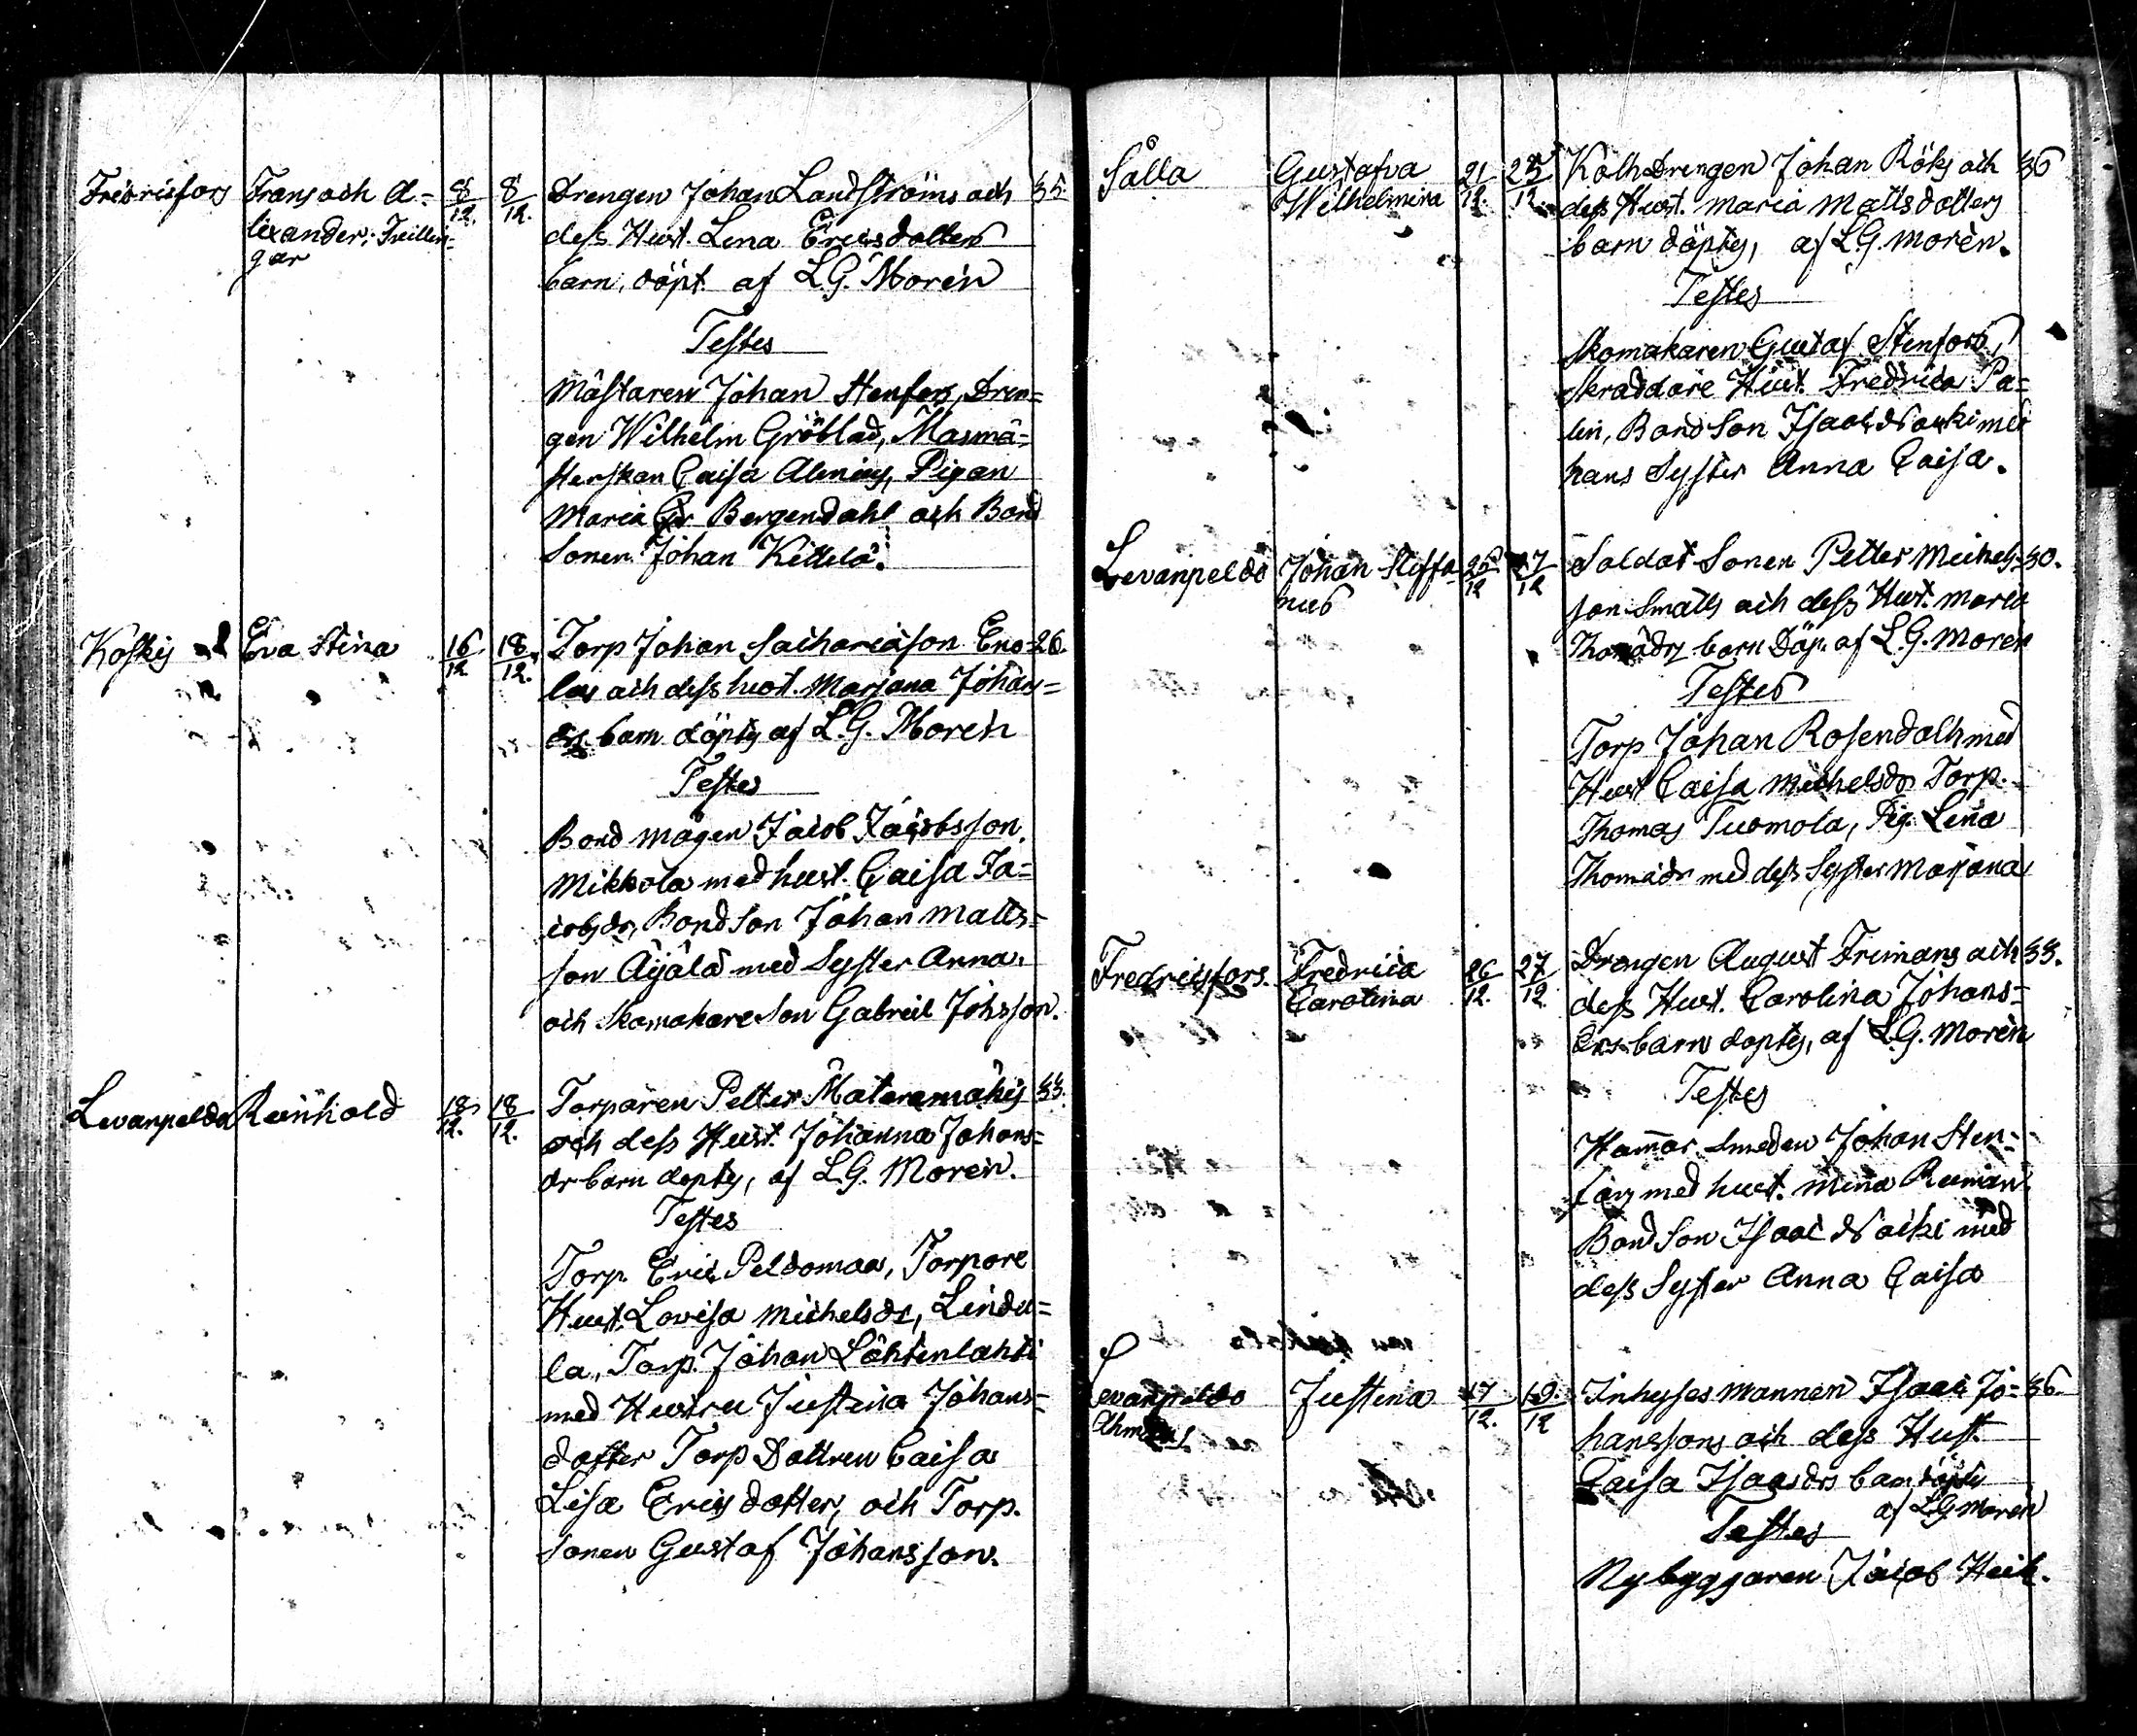 Fredricsfors Frans och A= 8/12. 8/12. Drengen Johan Landströms och 35.
lexander. Tvillin- dess Hust. Lena Ericsdotters
gar barn, döpt. af L.G. Morén
Testes
Mästaren Johan Stenfors, Dren=
gen Wilhelm Gröblad, Masmä=
sterskan Caisa Alenius, Pigan
Maria Bergendahl och Bond
Sonen Johan Kittilä.
Koskis Eva Stina 16/12 18/12. Torp Johan Sachariasson Eno= 26.
las och dess hust. Marjana Johans=
drs barn döpts af L.G. Morén
Testes
Bond mågen Jacob Jacobsson
Mikkola med hust. Caisa Ja=
cobsdr, Bond Son Johan Matts=
son Äijälä med Syster Anna.
och Skomakare Son Gabriel Johsson.
Levanpeldo Reinhold 18/12. 18/12. Torparen Petter Materamäkis 33.
och dess Hust. Johanna Johans=
dr barn döpts, af L.G. Morén.
Testes
Torp. Eric Peldomaa, Torpare
Hust. Lovisa Michelsdr, Lindu=
la, Torp. Johan Lähtenlahti
med Hustru Justina Johans=
dotter Torp Dottren Caisa
Lisa Ericsdotter, och Torp.
Sonen Gustaf Johansson.
Sålla Gustafva 21/12. 25/12. Kolh Drengen Johan Röks och 36
Wilhelmina dess Hust. Maria Mattsdotters
barn döpts, af L.G. Morén.
Testes
Skomakaren Gustaf Stenfors,
Skräddare Hust. Fredrica Pa=
lin, Bond Son Isaac Noki med
hans Syster Anna Caisa.
Levanpeldo Johan Steffa- 25/12 27/12 Soldat Sonen Petter Michels- 30.
nus son Smalls och dess Hust. Maria
Thomädrs barn Döp. af L.G. Morén
Testes
Torp Johan Rosendalh med
Hust Caisa Michelsdr Torp.
Thomas Tuomola, Pig. Lena
Thomädr med dess Syster Marjana
Fredricsfors. Fredrica 26/12. 27/12 Drengen August Frimans och 33.
Carolina dess Hust. Carolina Johans=
drs barn döpts, af L.G. Morén
Testes
Hammar Smeden Johan Sten-
fors med hust. Mina Reman
Bond Son Isaac Noki med
dess Syster Anna Caisa
Levanpeldo Justina 17/12. 19/12 Inhyses mannen Isaac Jo- 36.
hanssons och dess Hust.
Caisa Isaacsdrs barn döpts
af L.G. Morén
Testes
Nybyggaren Jacob Heik.